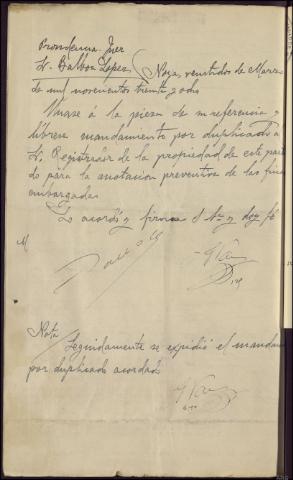 Providencia Juez
Sr. Balboa Lopez
Noya, veintidos de Marzo
de mil novecientos treinta y ocho
Unase á la pieza de su referencia y
librese mandamiento por duplicado al
Sr. Registrador de la propiedad de este parti
do para la anotacion preventiva de las fincas
embargadas
Lo acordó y firma el Sr. y doy fé
Nota
Seguidamente se expidió el mandamiento
por duplicado acordado